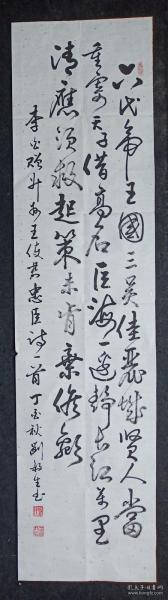 六代帝王國三吳佳麗城賢人當
重寄天子借高名巨海一邊靜長江萬里
清應須救趙策未肯棄侯嬴
李白贈升州王使君忠臣詩一首 丁酉秋 劉生书